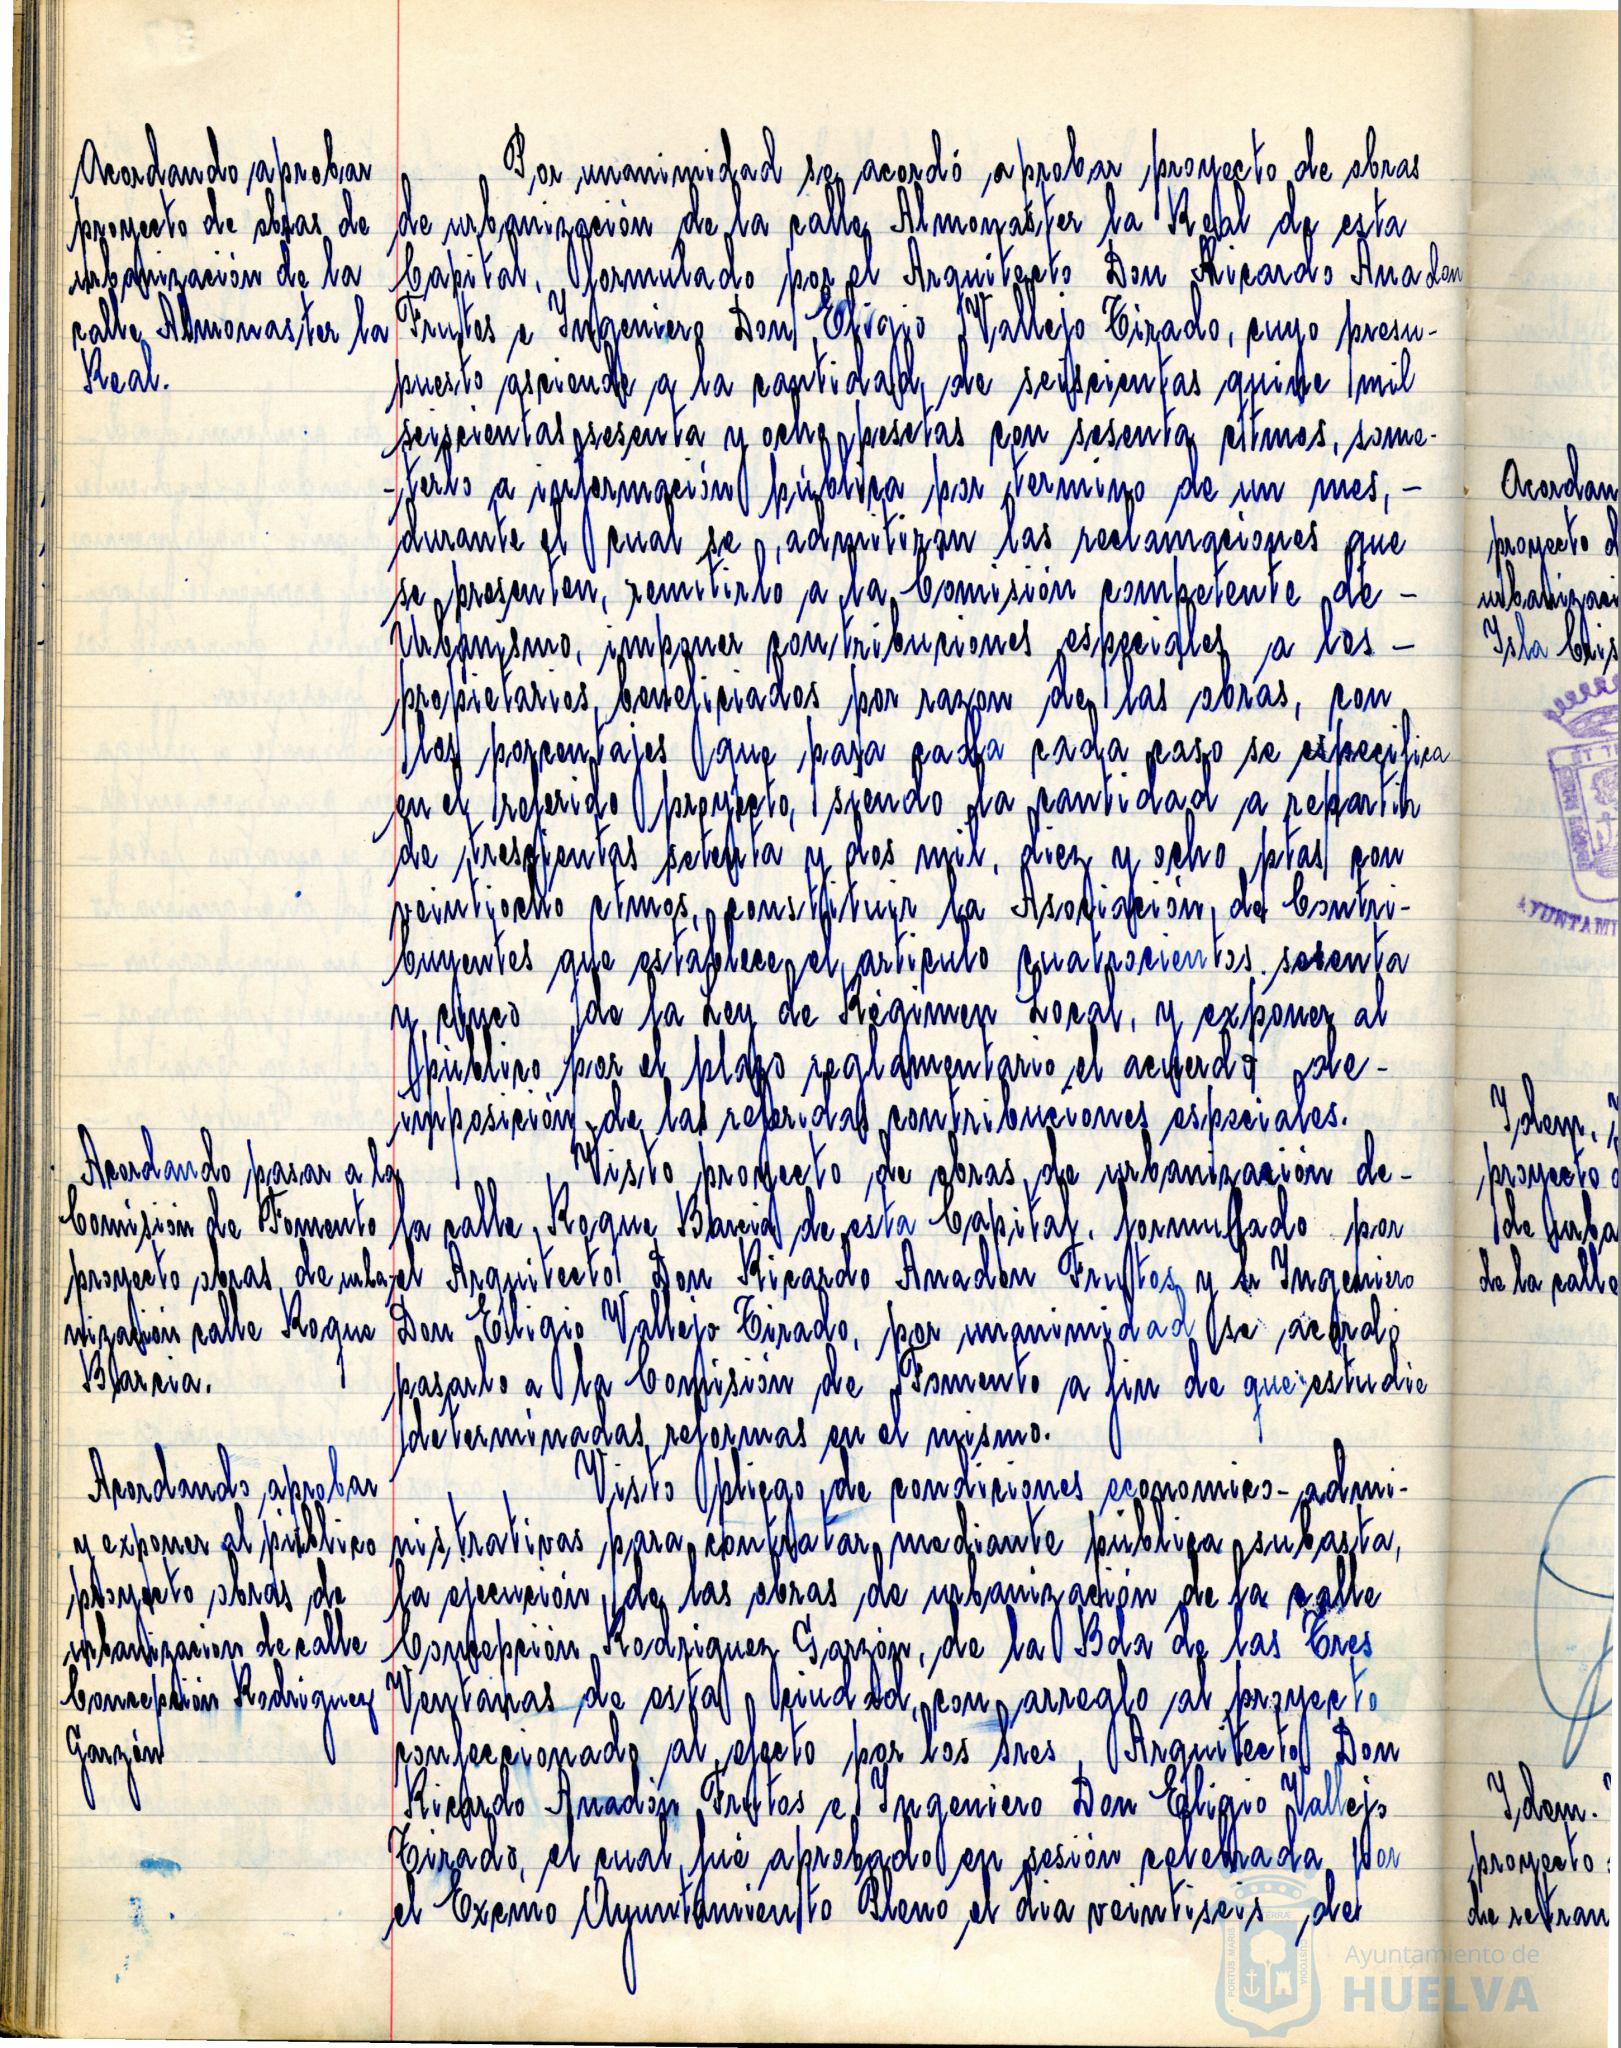 Acordando aprobar
proyecto de obras de
urbanización de la
calle Almonaster la
Real.
Por unanimidad se acordó aprobar proyecto de obras
de urbanización de la calle Almonaster la Real de esta
Capital, formulado por el Arquitecto Don Ricardo Anadon
Frutos e Ingeniero Don Eligio Vallejo Tirado, cuyo presu-
puesto asciende a la cantidad de seiscientas quince mil
seiscientas sesenta y ocho pesetas con sesenta ctmos, some-
-terlo a información pública por termino de un mes, -
durante el cual se admitiran las reclamaciones que
se presenten, remitirlo a la Comisión competente de -
Urbanismo, imponer contribuciones especiales a los -
propietarios beneficiados por razon de las obras, con
los porcentajes que para cada cada caso se especifica
en el referido proyecto, siendo la cantidad a repartir
de trescientas setenta y dos mil, diez y ocho ptas con
veintiocho ctmos, constituir la Asociación de Contri-
buyentes que establece el articulo cuatrocientos sesenta
y cinco de la Ley de Régimen Local, y exponer al
público por el plazo reglamentario el acuerdo de -
imposición de las referidas contribuciones especiales.
Acordando pasar a la
Comisión de Fomento
proyecto obras de urba-
nización calle Roque
Barcia.
Visto proyecto de obras de urbanización de -
la calle Roque Barcia de esta Capital, formulado por
el Arquitecto Don Ricardo Anadón Frutos y el Ingeniero
Don Eligio Vallejo Tirado, por unanimidad se acordó
pasarlo a la Comisión de Fomento a fin de que estudie
determinadas reformas en el mismo.
Acordando aprobar
y exponer al público
proyecto obras de
urbanización de calle
Concepción Rodriguez
Garzón
Visto pliego de condiciones economico-admi-
nistrativas para contratar mediante pública subasta,
la ejecución de las obras de urbanización de la calle
Concepción Rodriguez Garzón, de la Bda de las Tres
Ventanas de esta ciudad, con arreglo al proyecto
confeccionado al efecto por los Sres Arquitecto Don
Ricardo Anadón Frutos e Ingeniero Don Eligio Vallejo
Tirado, el cual fué aprobado en sesión celebrada por
el Excmo Ayuntamiento Pleno el dia veintiseis de
Acordan
proyecto d
urbanizaci
Isla Cris
Idem.
proyecto
de urba
de la calle
Idem.
proyecto
de retran
Ayuntamiento de
HUELVA